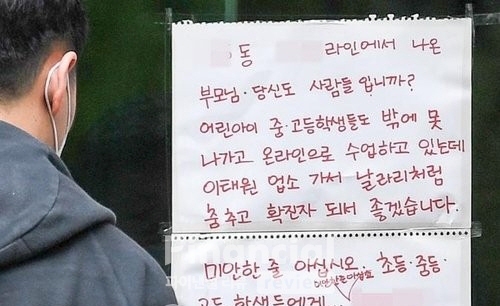 동 라인에서 나온
부모님·당신도 사람들 입니까?
어린아이 중·고등학생들도 밖에 못
나가고 온라인으로 수업하고 있는데
이태원 업소 가서 날라리처럼
춤추고 확진자 되서 좋겠습니다.
미안한 줄 아십시오, 초등·중등
고등 학생들에게
Financial
파이낸셜
review